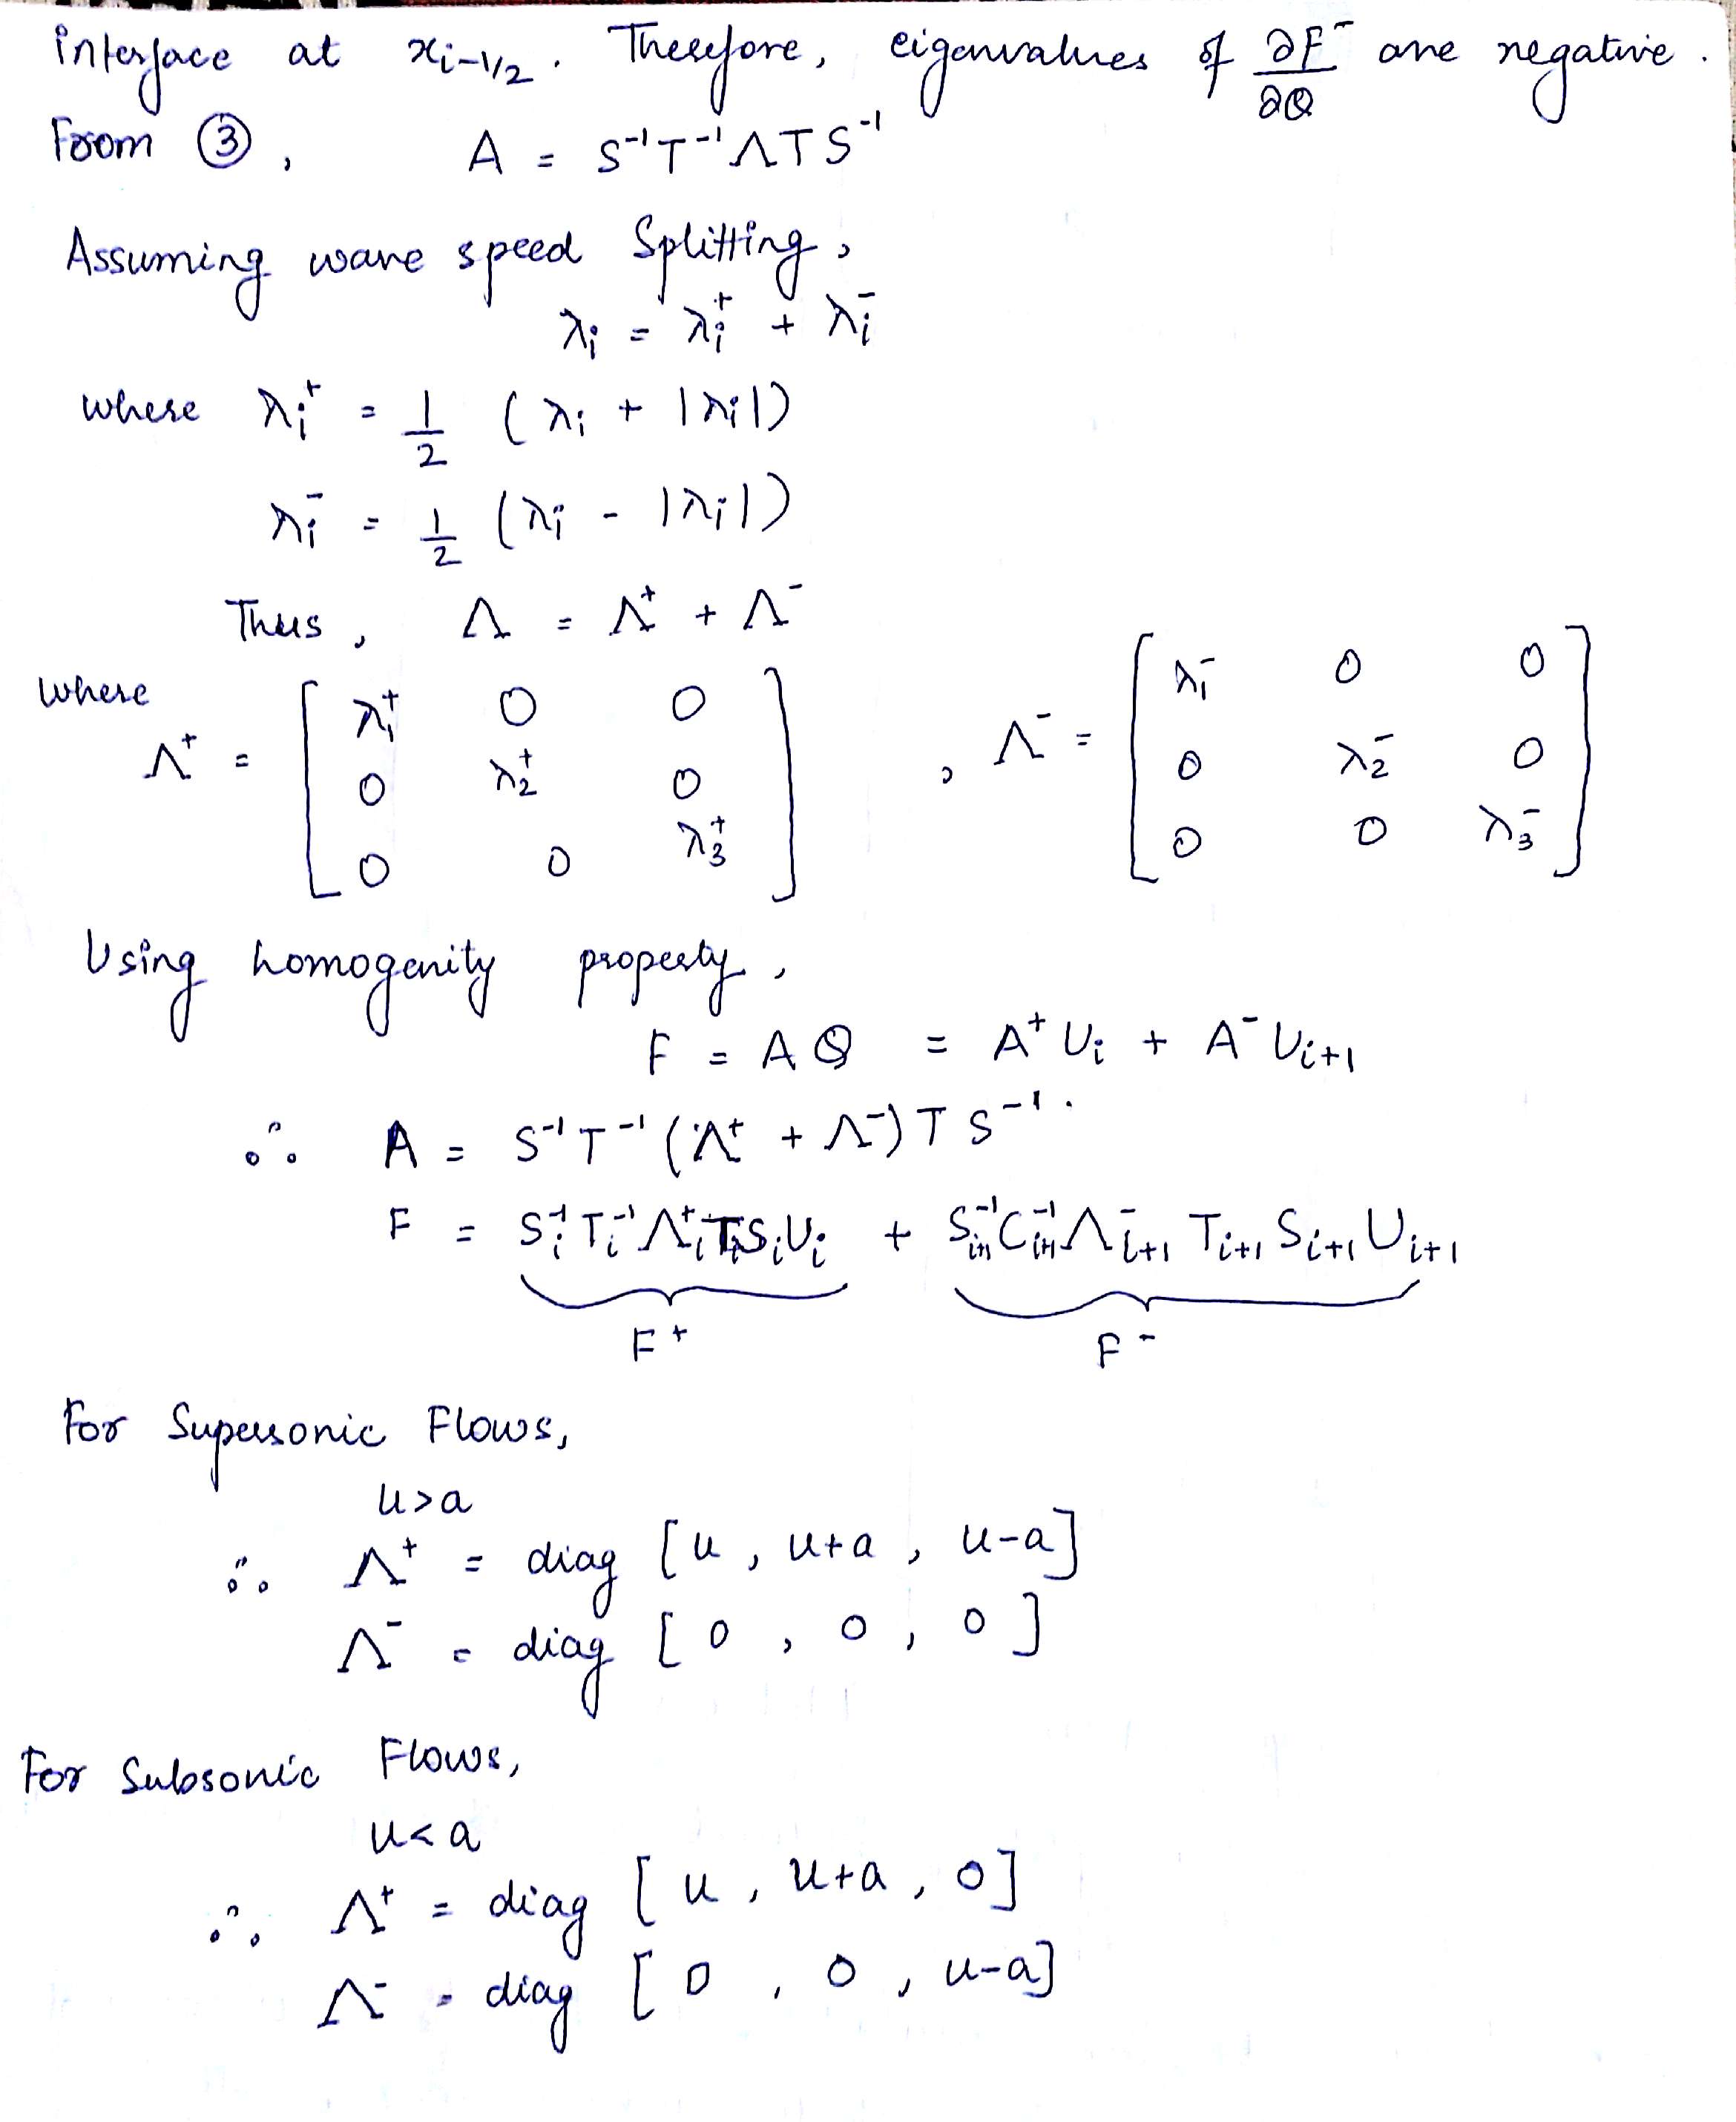 interface at x_{i-1/2}. Therefore, eigenvalues of ∂F⁻/∂Q are negative.
From ③, A = S⁻¹T⁻¹ΛTS⁻¹
Assuming wave speed Splitting,
λᵢ = λᵢ⁺ + λᵢ⁻
where λᵢ⁺ = 1/2 (λᵢ + |λᵢ|)
λᵢ⁻ = 1/2 (λᵢ - |λᵢ|)
Thus, Λ = Λ⁺ + Λ⁻
where
Λ⁺ = [λ₁⁺ 0 0; 0 λ₂⁺ 0; 0 0 λ₃⁺], Λ⁻ = [λ₁⁻ 0 0; 0 λ₂⁻ 0; 0 0 λ₃⁻]
Using homogenity property,
F = AQ = A⁺Uᵢ + A⁻Uᵢ₊₁
∴ A = S⁻¹T⁻¹(Λ⁺ + Λ⁻)TS⁻¹.
F = Sᵢ⁻¹Tᵢ⁻¹Λᵢ⁺TᵢSᵢUᵢ + Sᵢ₊₁⁻¹Cᵢ₊₁⁻¹Λᵢ₊₁⁻Tᵢ₊₁Sᵢ₊₁Uᵢ₊₁
F⁺ F⁻
For Supersonic Flows,
u>a
∴ Λ⁺ = diag [u, u+a, u-a]
Λ⁻ = diag [0, 0, 0]
For Subsonic Flows,
u<a
∴ Λ⁺ = diag [u, u+a, 0]
Λ⁻ = diag [0, 0, u-a]